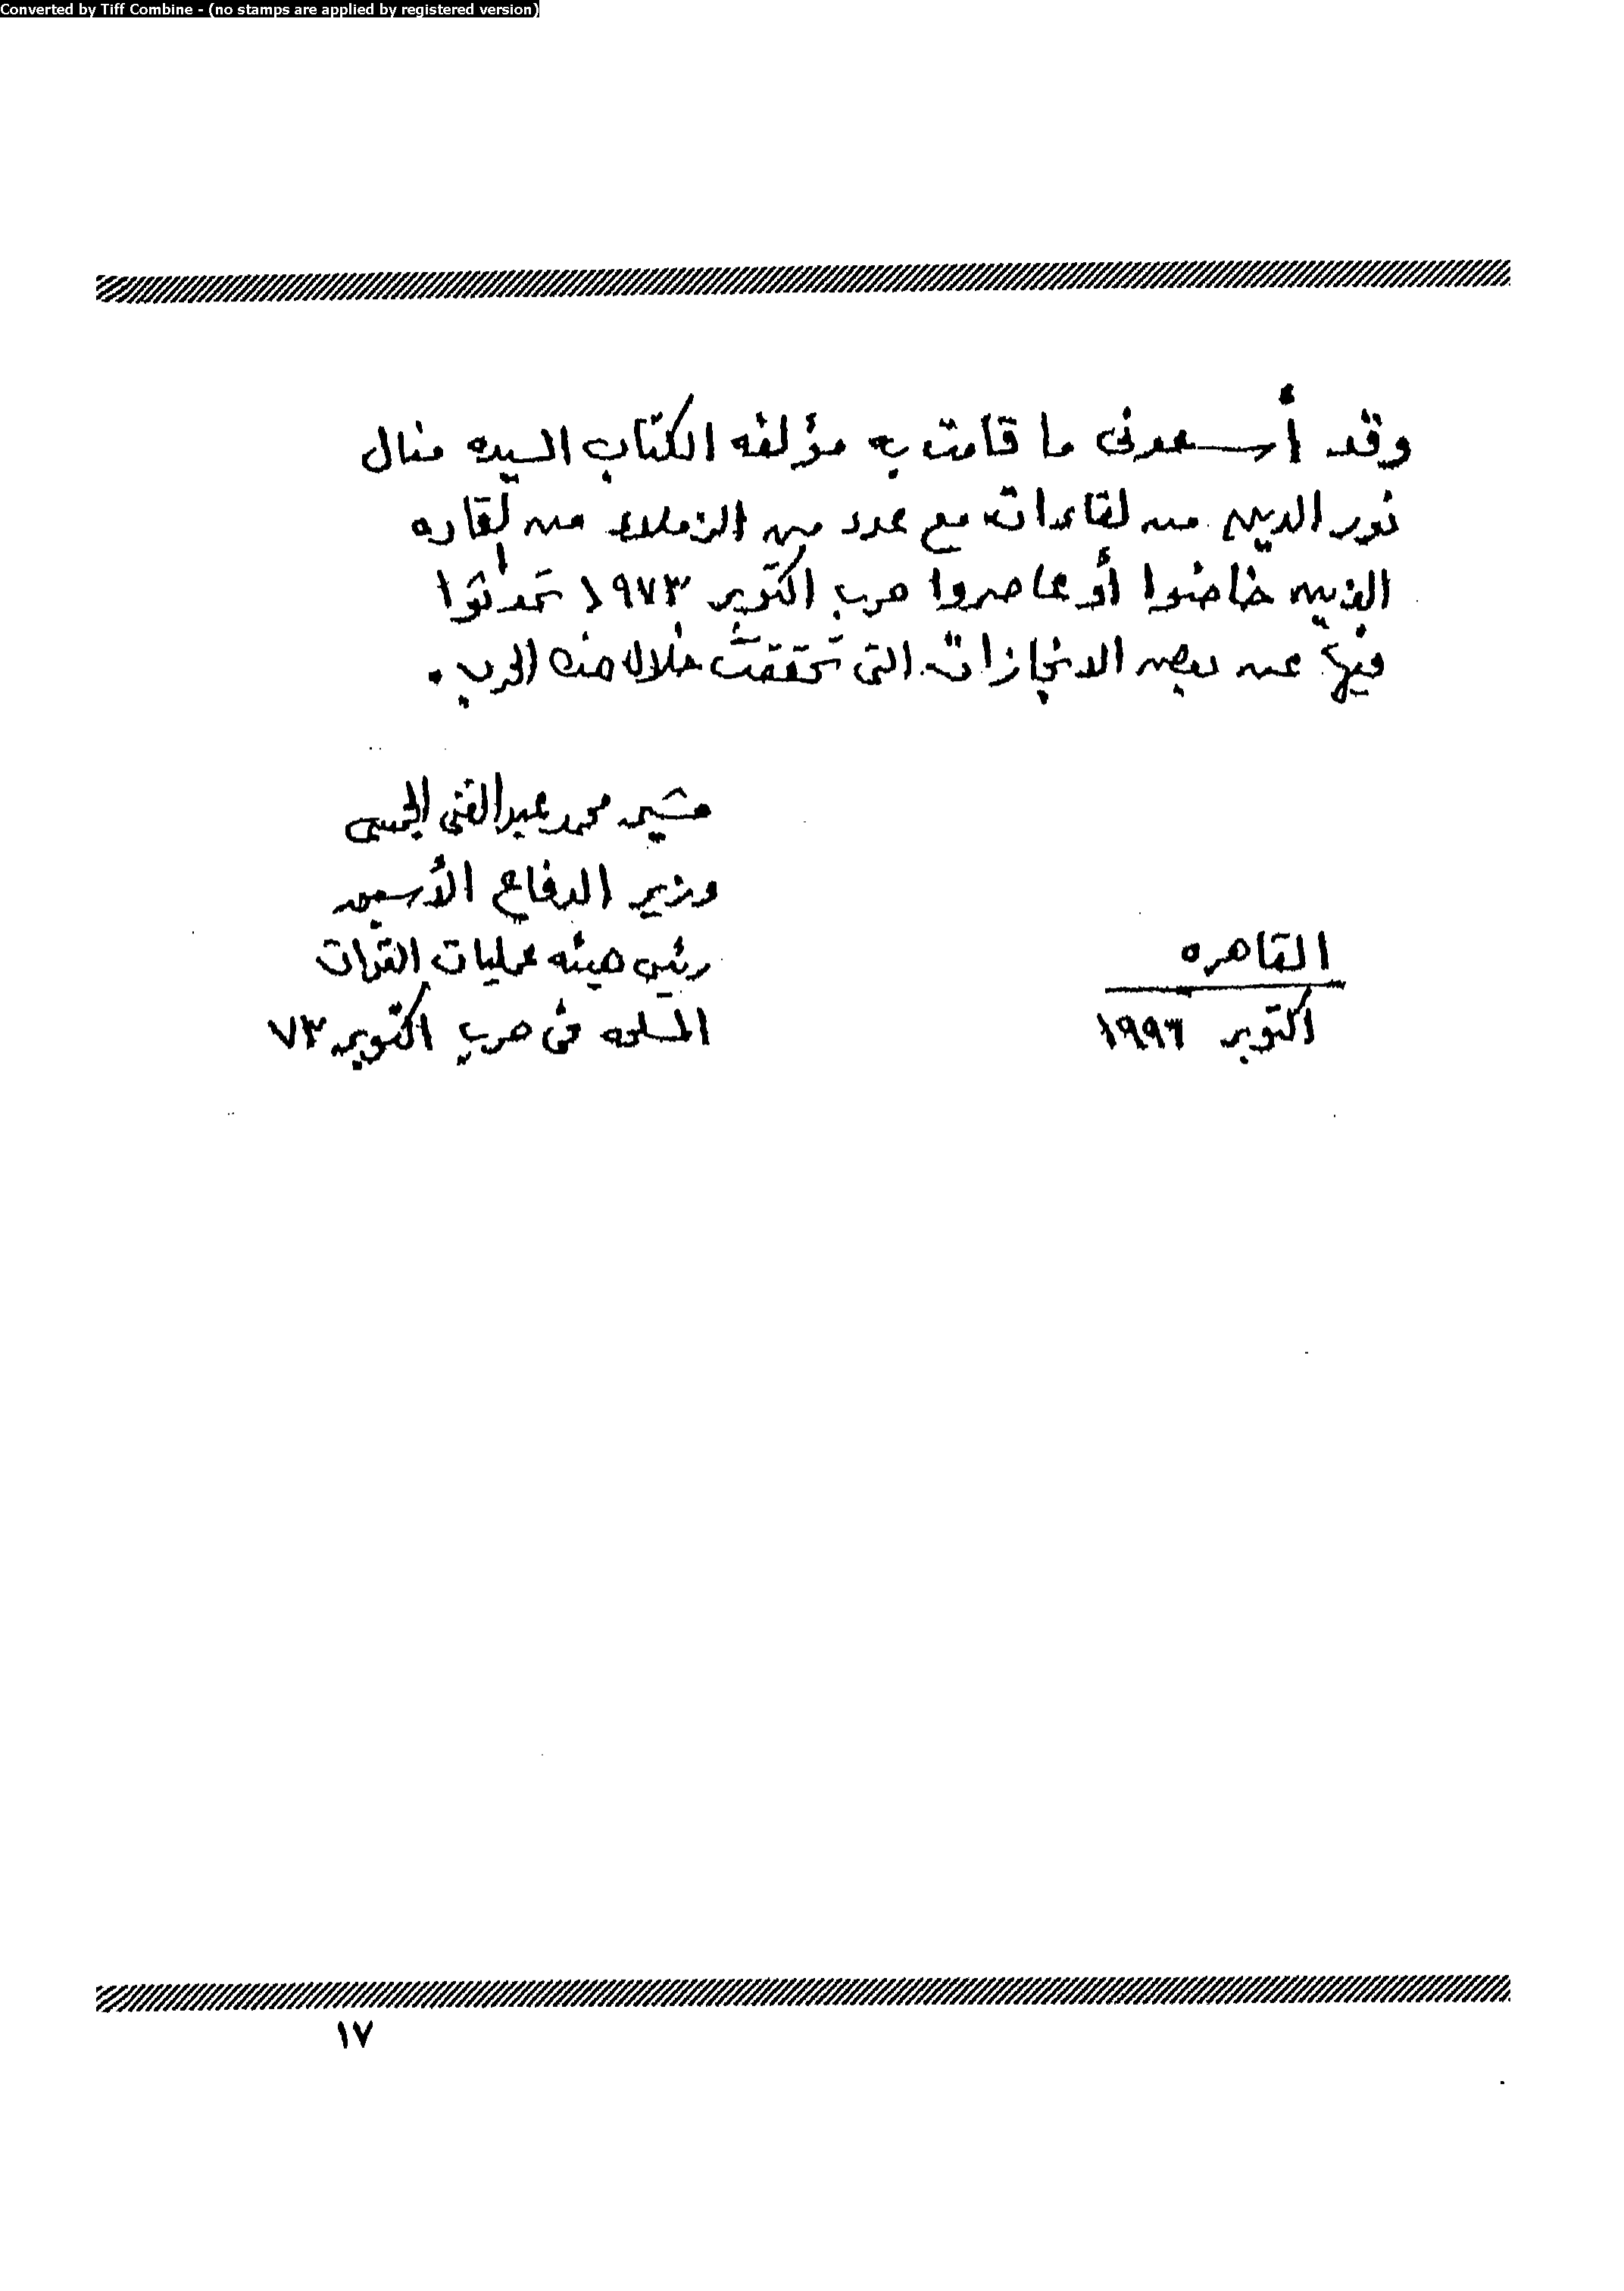 Converted by Tiff Combine - (no stamps are applied by registered version)
وقد أسعدنى ما قامت به مؤلفه الكتاب السيده منال
نور الدين من لقاءات مع عدد من الزملاء من القاده
الذين خاضوا أو عاصروا حرب اكتوبر ١٩٧٣ تحدثوا
فيها عن بعض الانجازات التى تحققت خلال هذه الحرب .
مشير محمد عبد الغنى الجمسى
وزير الدفاع الأسبق
رئيس هيئه عمليات القوات
المسلحه فى حرب اكتوبر ٧٣
القاهره
اكتوبر ١٩٩٦
١٧